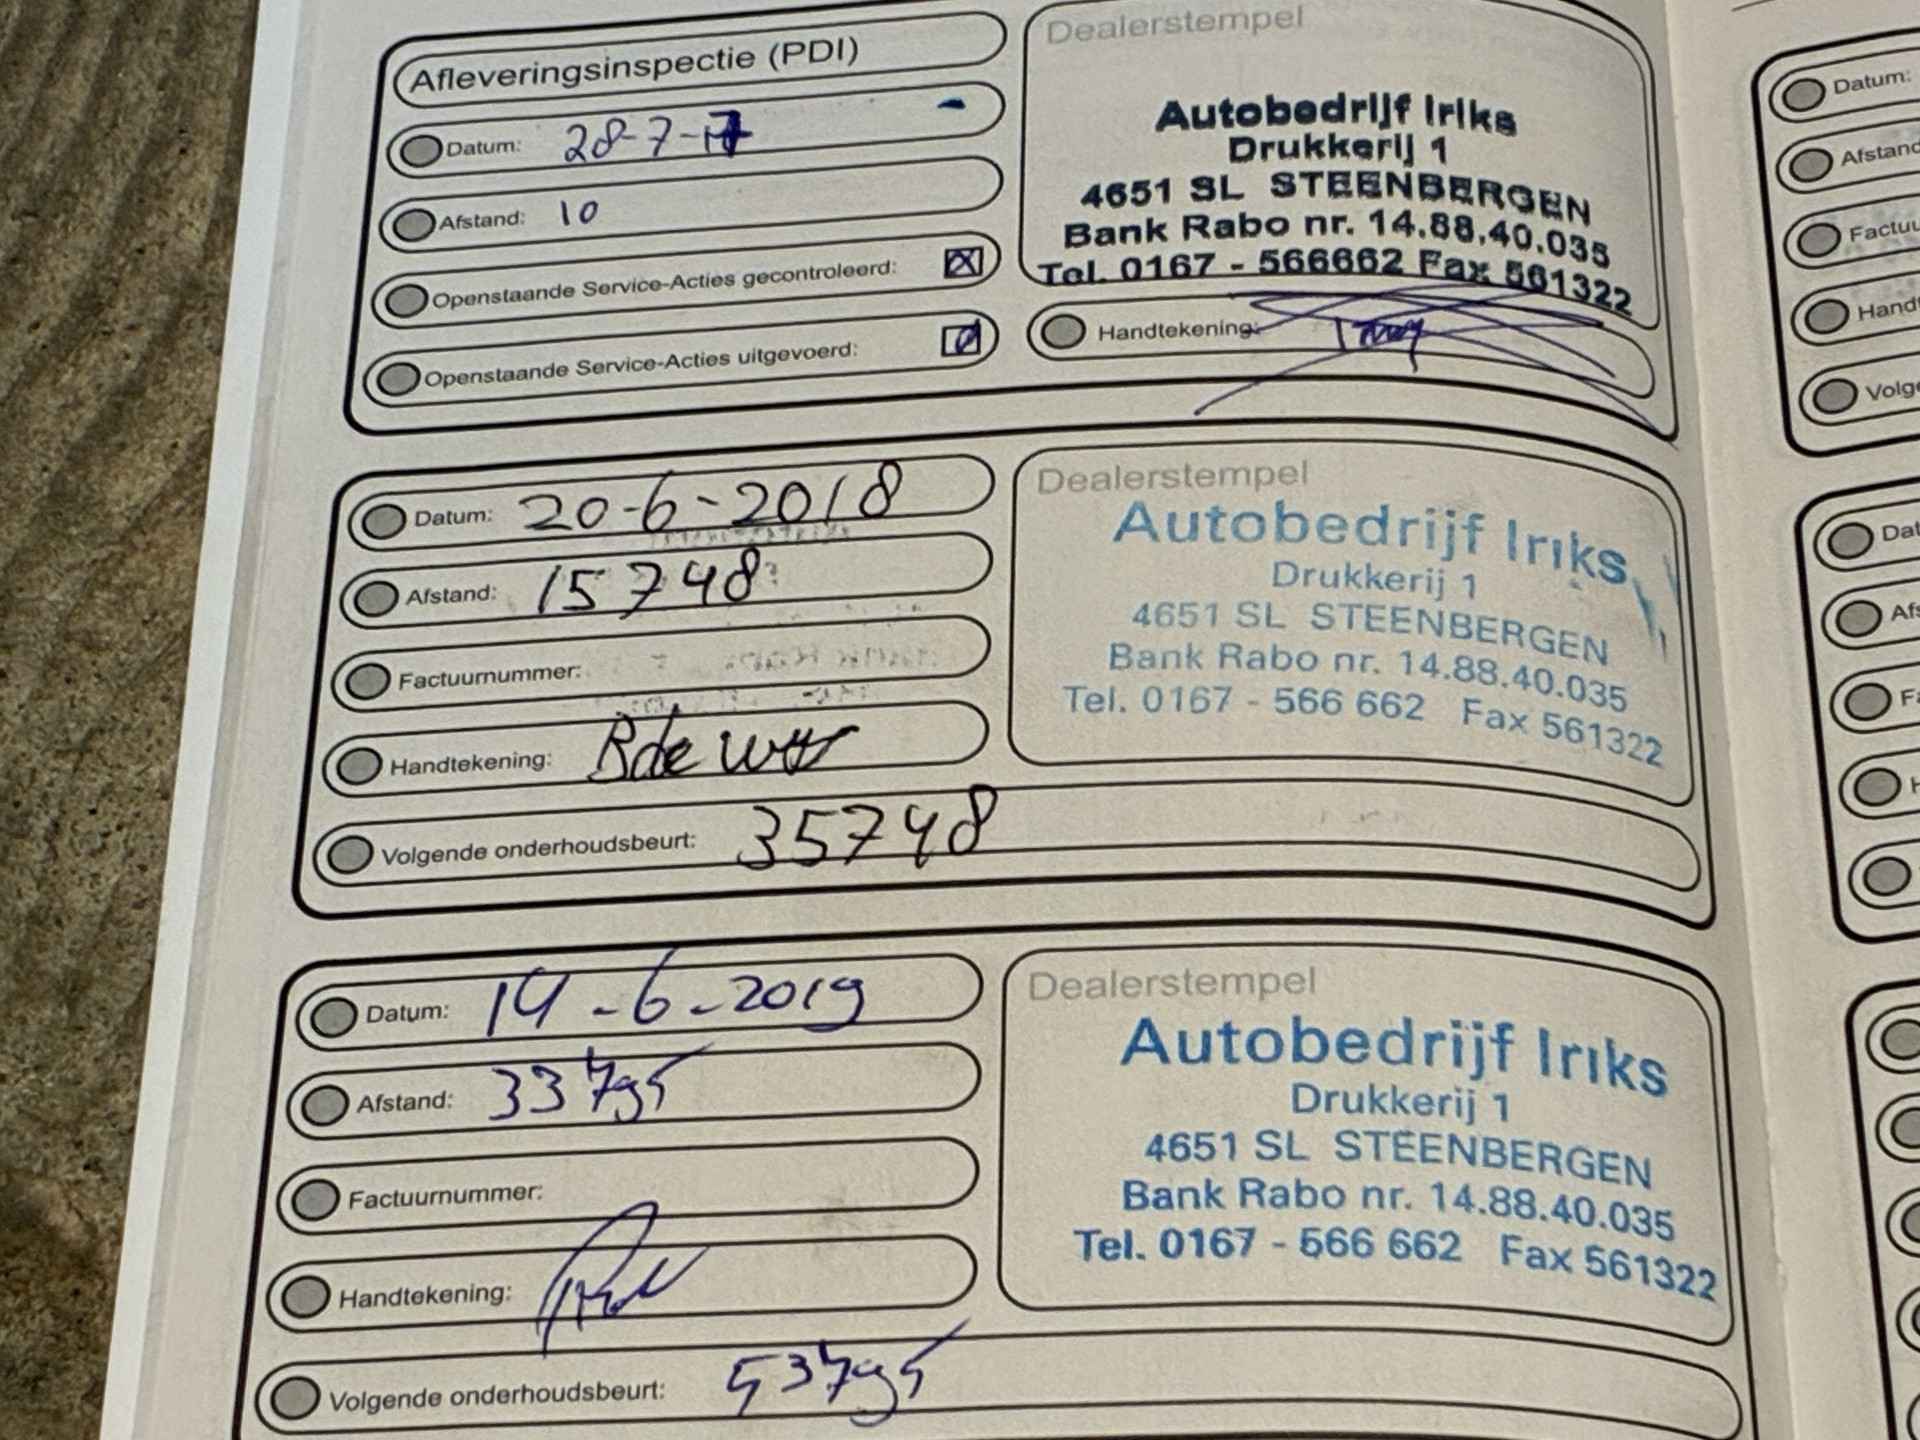 Afleveringsinspectie (PDI)
Datum: 28-7-17
Afstand: 10
Openstaande Service-Acties gecontroleerd:
Openstaande Service-Acties uitgevoerd:
Dealerstempel
Autobedrijf Iriks
Drukkerij 1
4651 SL STEENBERGEN
Bank Rabo nr. 14.88.40.035
Tel. 0167 - 566662 Fax 561322
Handtekening:
Datum: 20-6-2018
Afstand: 15748
Factuurnummer:
Handtekening:
Volgende onderhoudsbeurt: 35748
Dealerstempel
Autobedrijf Iriks
Drukkerij 1
4651 SL STEENBERGEN
Bank Rabo nr. 14.88.40.035
Tel. 0167 - 566 662 Fax 561322
Datum: 14-6-2019
Afstand: 33795
Factuurnummer:
Handtekening:
Volgende onderhoudsbeurt: 53795
Dealerstempel
Autobedrijf Iriks
Drukkerij 1
4651 SL STEENBERGEN
Bank Rabo nr. 14.88.40.035
Tel. 0167 - 566 662 Fax 561322
Datum:
Afstand
Factuu
Handt
Volge
Dat
Afs
Fa
H